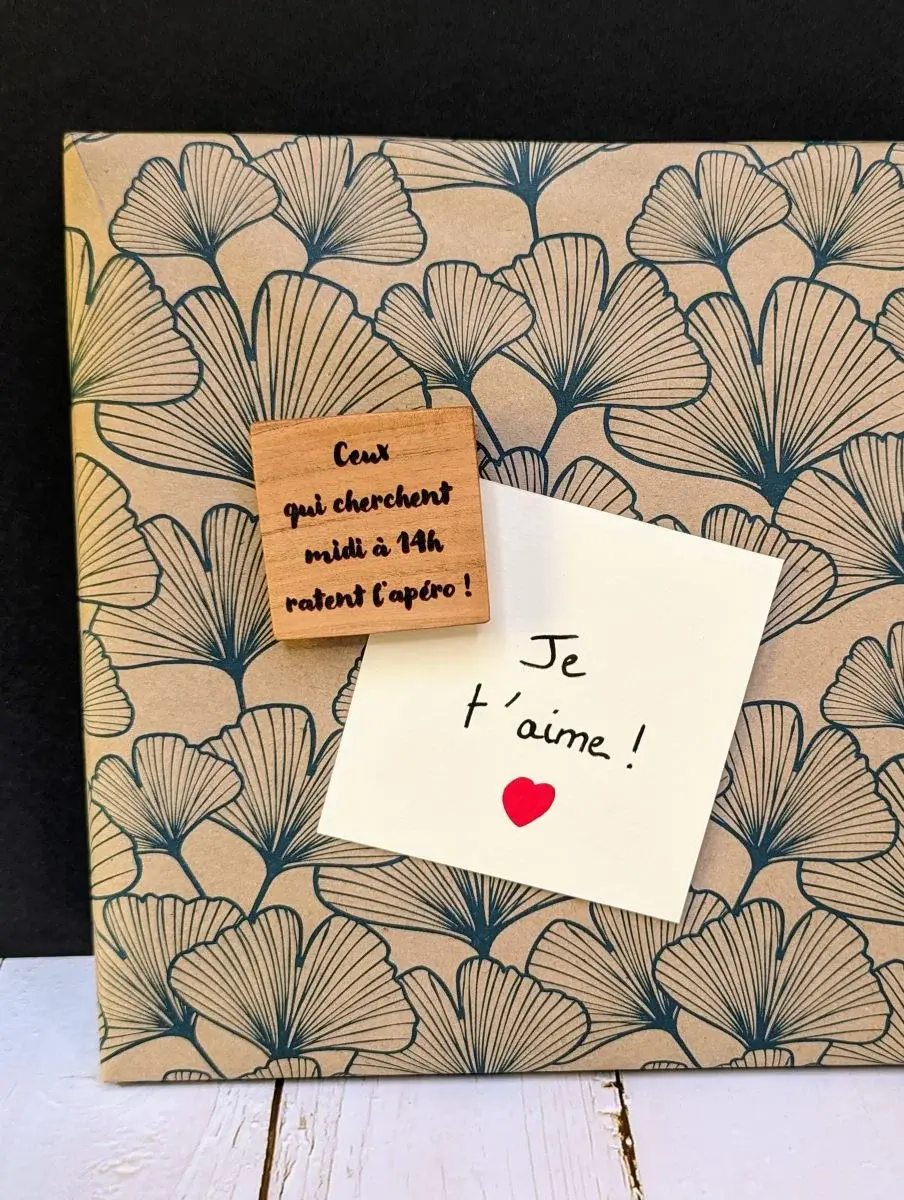 Ceux
qui cherchent
midi à 14h
ratent l'apéro !
Je
t'aime !